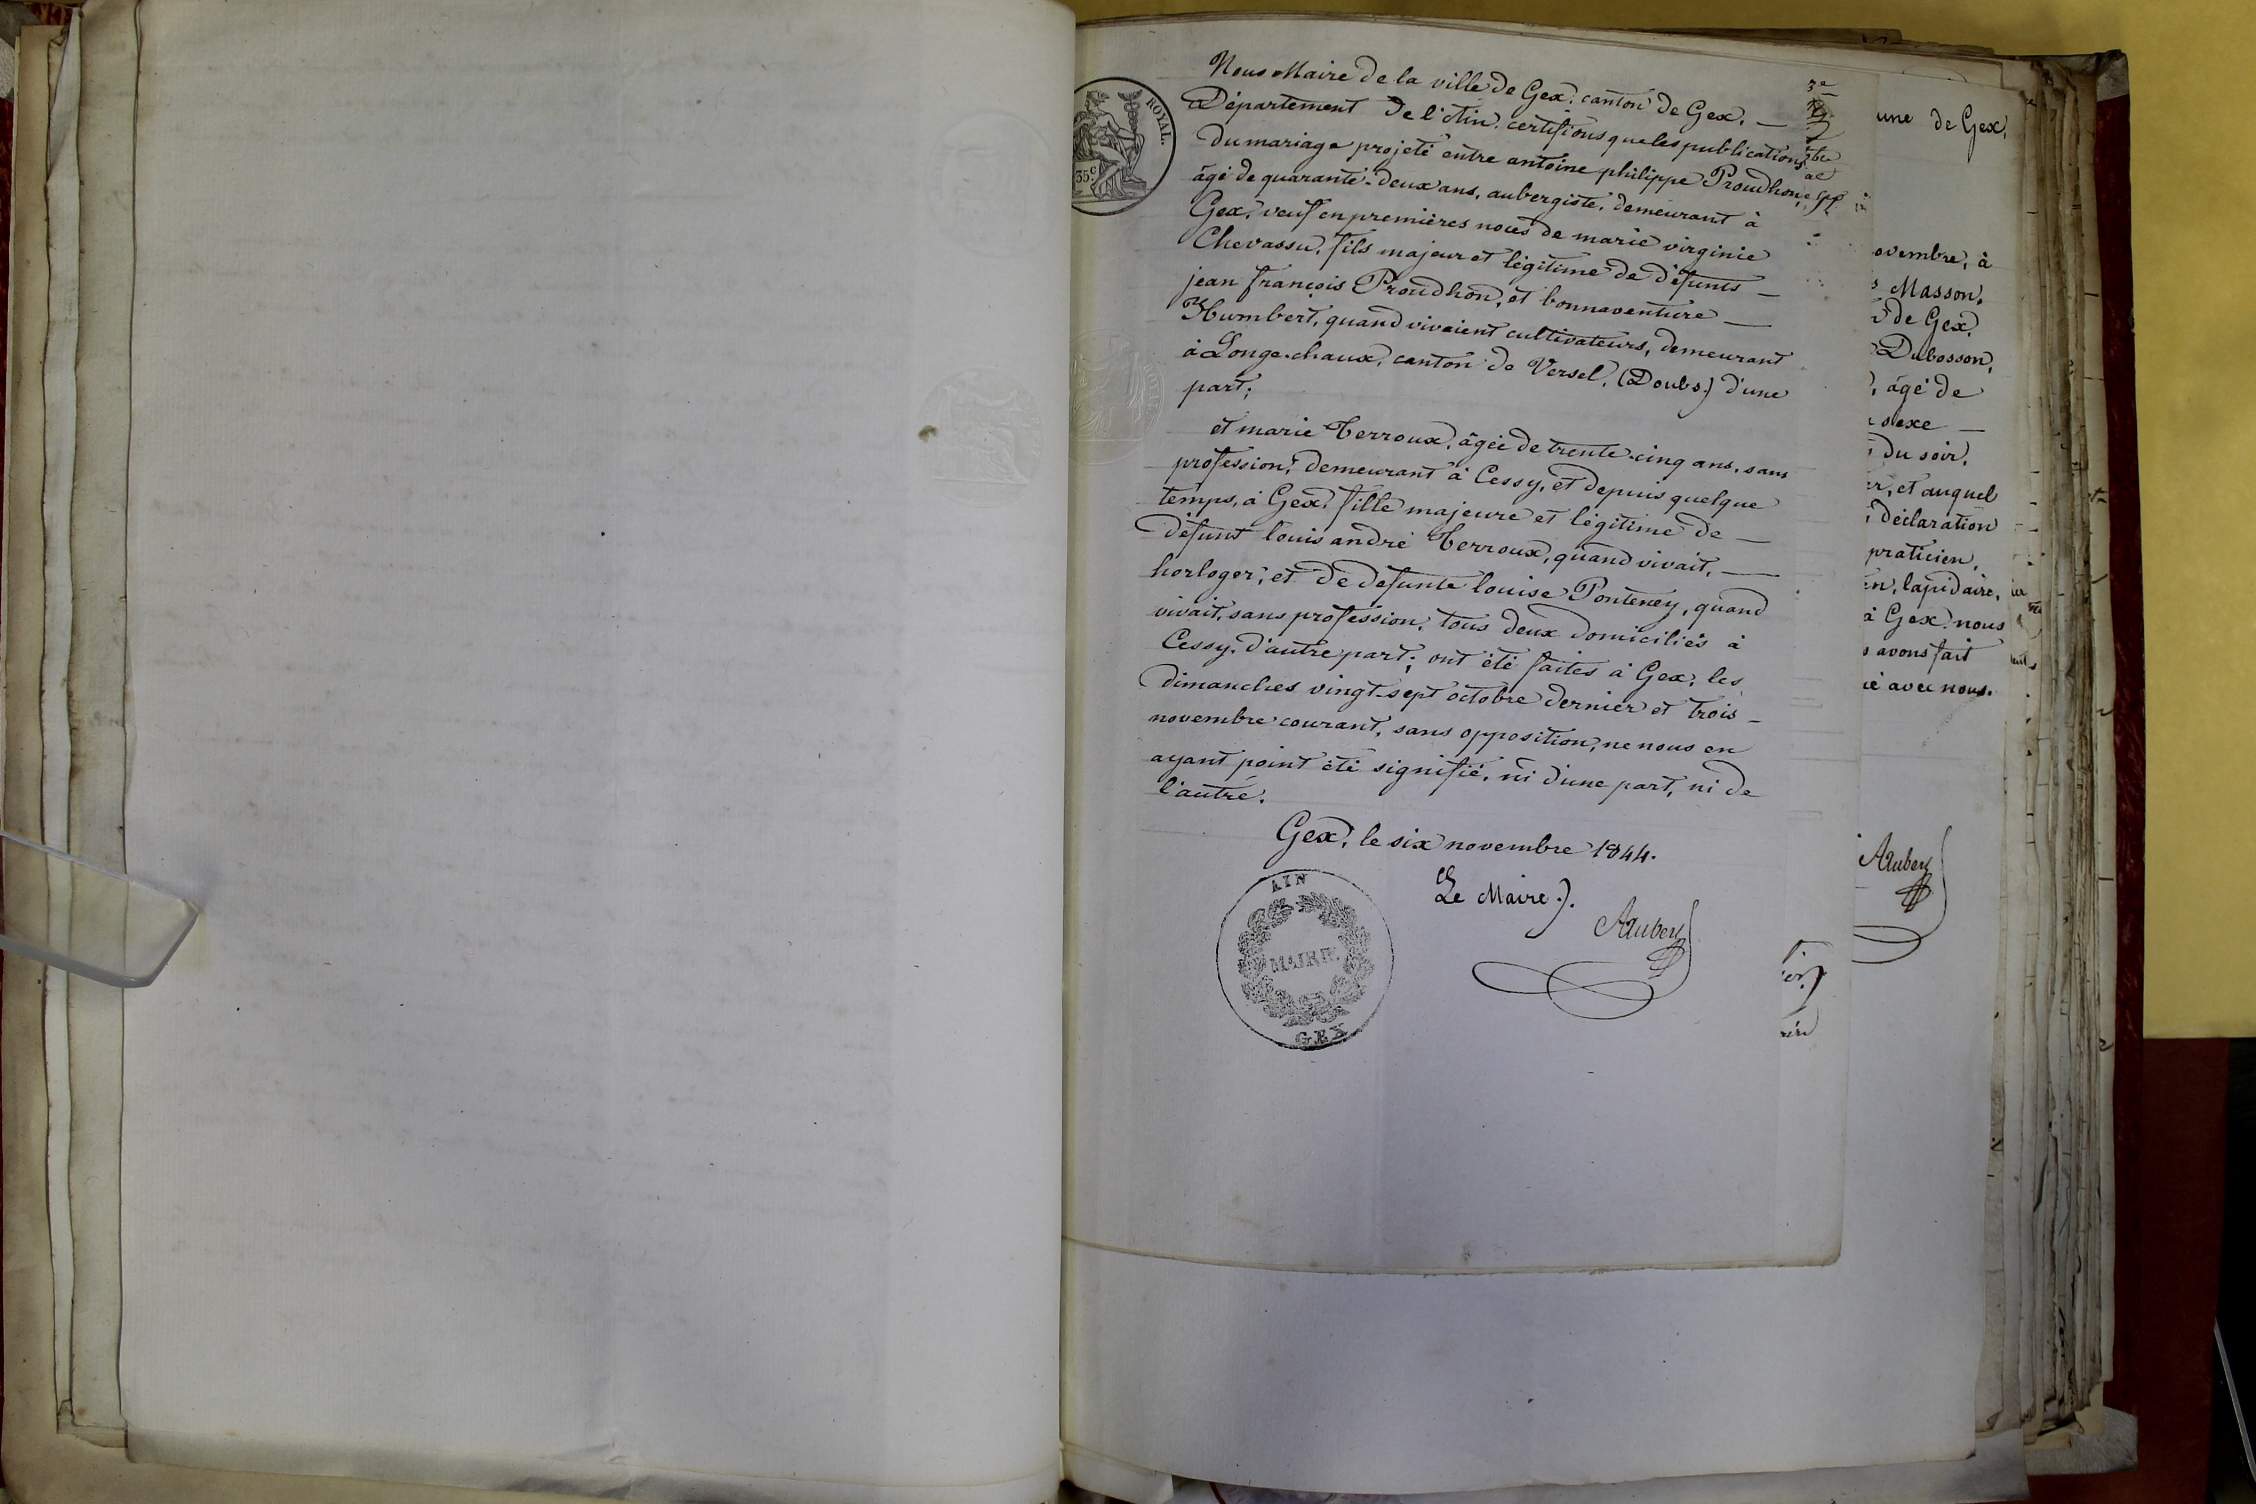 Nous Maire de la ville de Gex, canton de Gex, —
Département de l'Ain, certifions que les publications
du mariage projeté entre antoine philippe Proudhon,
âgé de quarante-deux ans, aubergiste, demeurant à
Gex, veuf en premières noces de marie virginie
Chevassu, fils majeur et légitime de défunts —
jean françois Proudhon, et bonnaventure —
Humbert, quand vivaient cultivateurs, demeurant
à Longe-chaux, canton de Versel, (Doubs.) d'une
part;
et marie Terroux, âgée de trente-cinq ans, sans
profession, demeurant à Cessy, et depuis quelque
temps, à Gex, fille majeure et légitime de —
défunt louis andré Terroux, quand vivait, —
horloger; et de defunte louise Ponteney, quand
vivait, sans profession, tous deux domiciliés à
Cessy, d'autre part; ont été faites à Gex, les
dimanches vingt-sept octobre dernier et trois —
novembre courant, sans opposition, ne nous en
ayant point été signifié, ni d'une part, ni de
l'autre.
Gex, le six novembre 1844.
Le Maire.
Aubery
AIN
MAIRIE
GEX
ROYAL.
35c
une de Gex,
ovembre, à
Masson,
de Gex,
Dubosson,
, âgé de
sexe —
du soir,
er, et auquel
déclaration
praticien,
en, lapidaire,
à Gex nous
avons fait
é avec nous.
Aubery